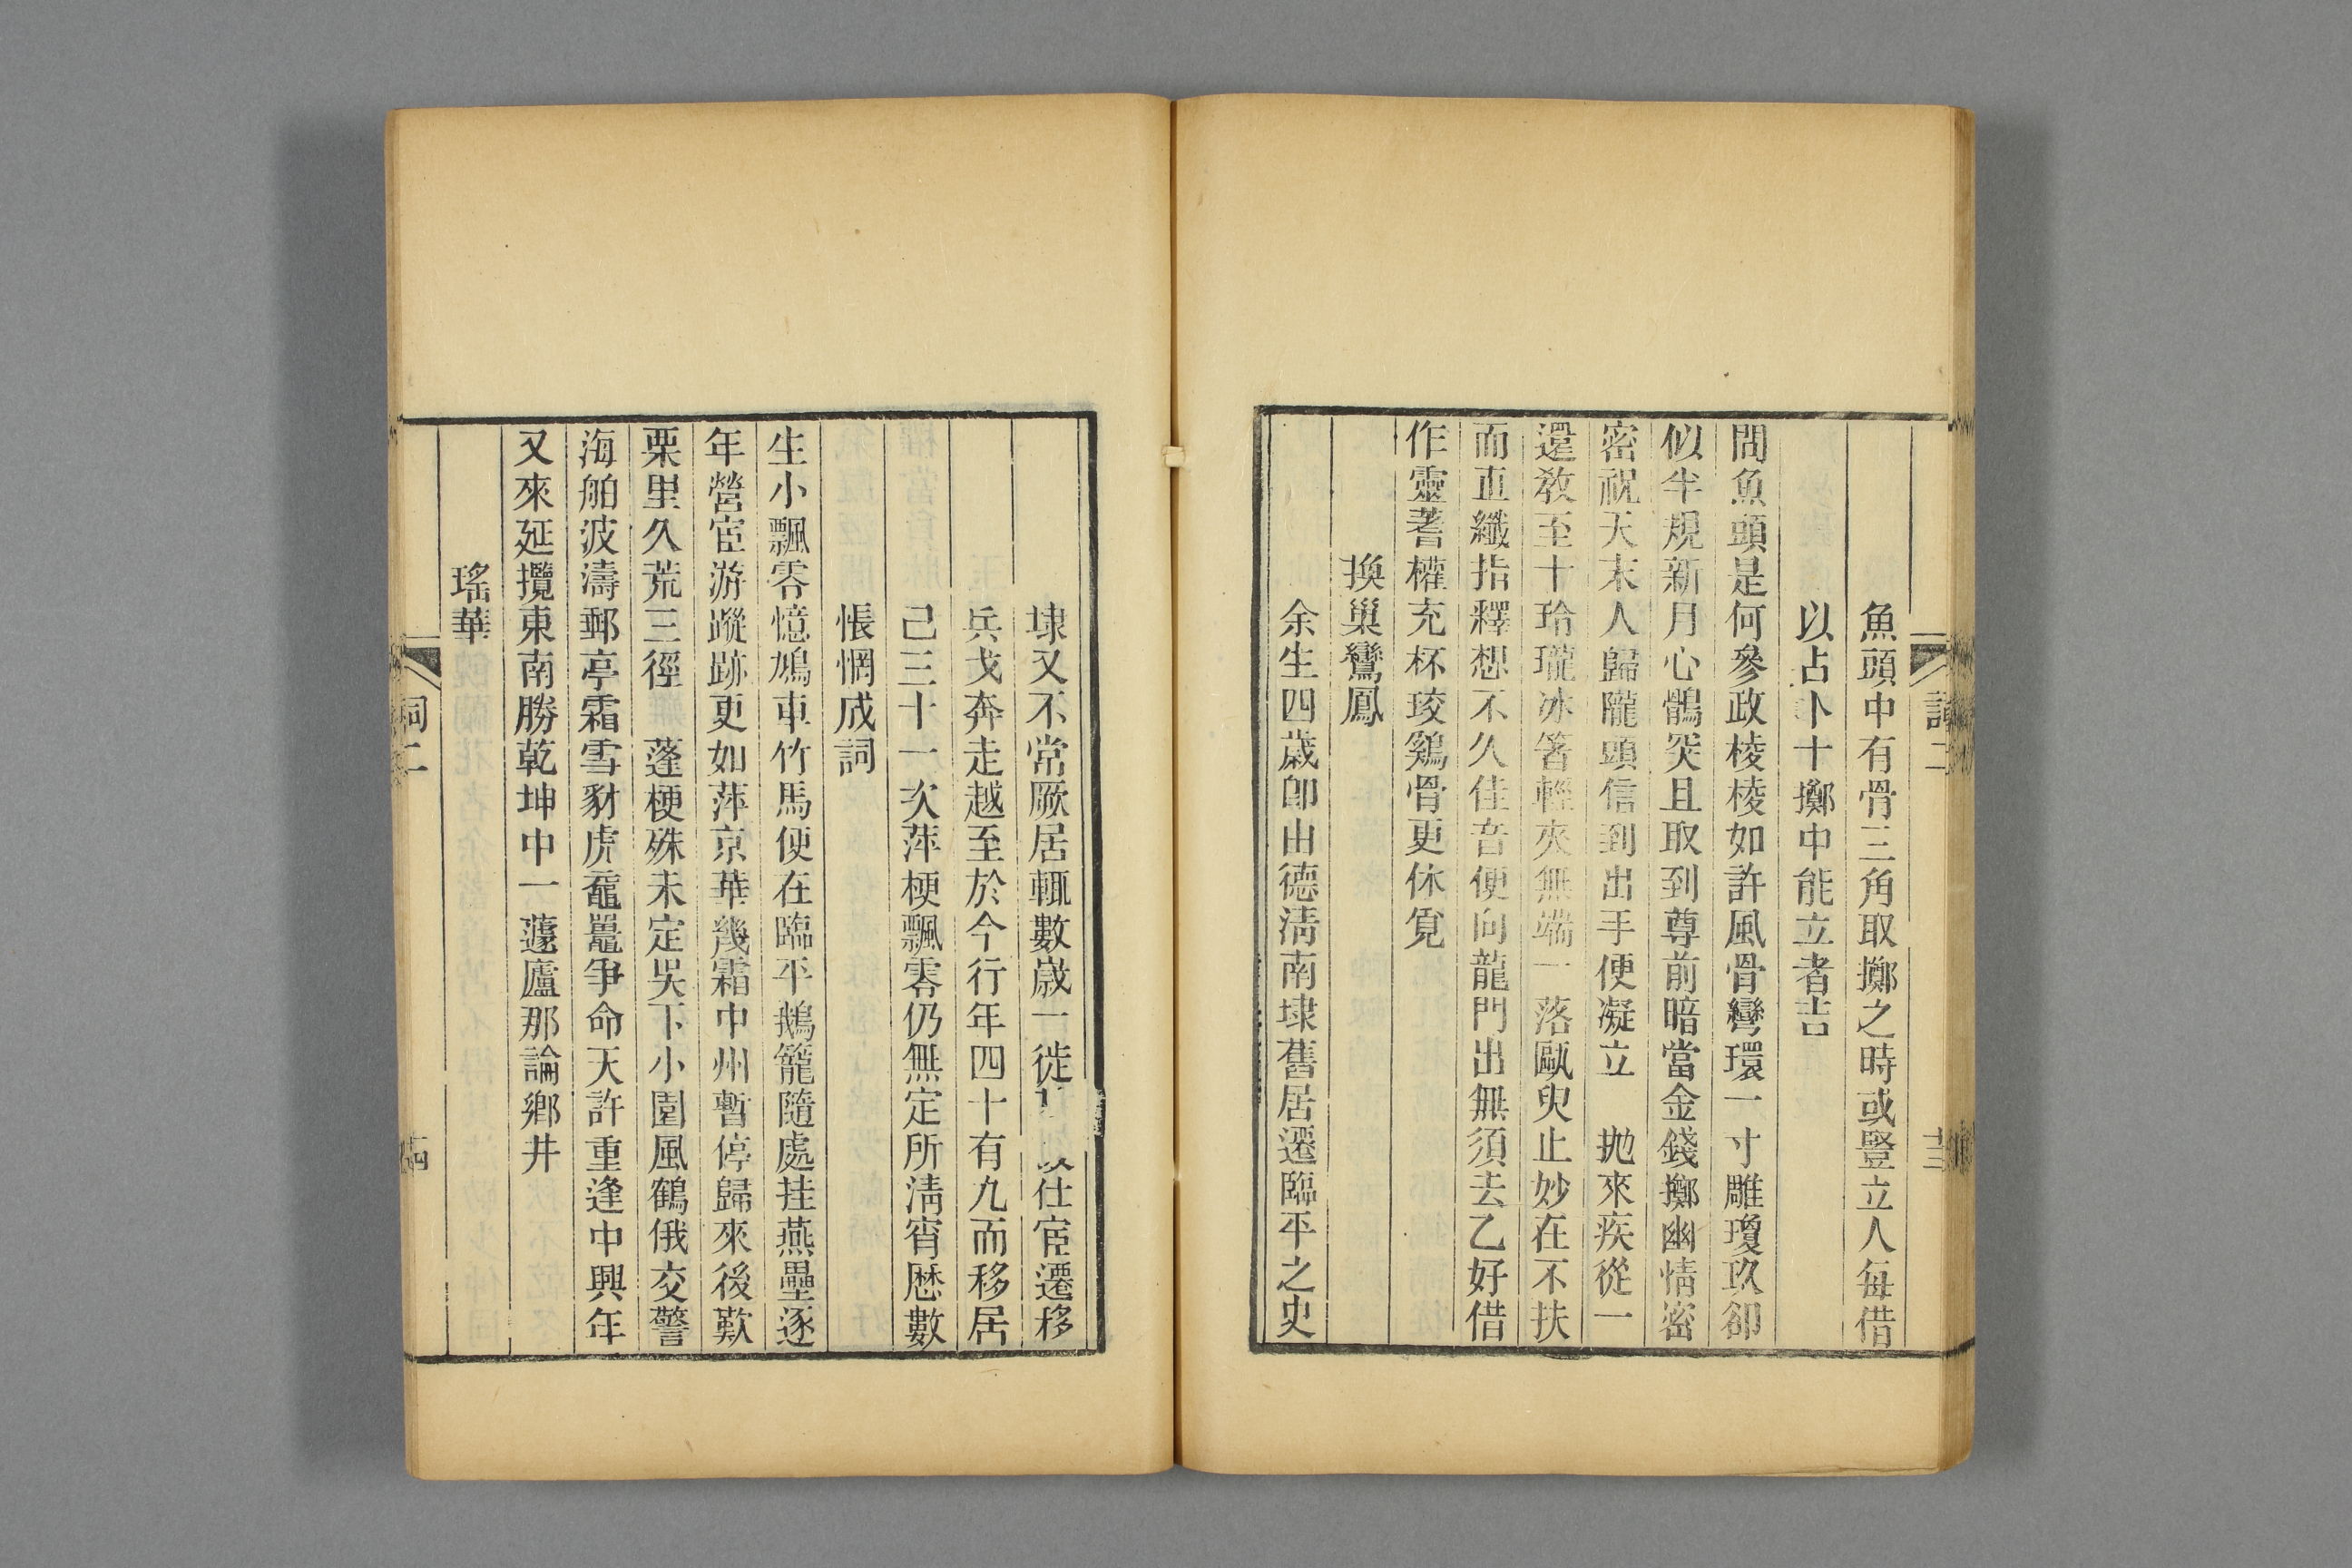 魚頭中有骨三角取擲之時或豎立人每借
以占卜十擲中能立者吉
問魚頭是何參政棱棱如許風骨彎環一寸雕瓊玖卻
似半規新月心鶻突且取到尊前暗當金錢擲幽情密
密祝天末人歸隴頭信到出手便凝立　拋來疾從一
還敎至十玲瓏冰箸輕夾無端一落甌臾止妙在不扶
而直纖指釋想不久佳音便向龍門出無須去乙好借
作靈蓍權充杯珓鷄骨更休覓
換巢鸞鳳
余生四歲卽由德淸南埭舊居遷臨平之史
詞二
埭又不常厥居輒數歲一徙　仕宦遷移
兵戈奔走越至於今行年四十有九而移居
己三十一次萍梗飄零仍無定所淸宵厯數
悵惘成詞
生小飄零憶鳩車竹馬便在臨平鵝籠隨處挂燕壘逐
年營宦游蹤跡更如萍京華幾霜中州暫停歸來後歎
栗里久荒三徑　蓬梗殊未定吳下小園風鶴俄交警
海舶波濤郵亭霜雪豺虎黿鼉爭命天許重逢中興年
又來延攬東南勝乾坤中一蘧廬那論鄕井
瑤華
詞二